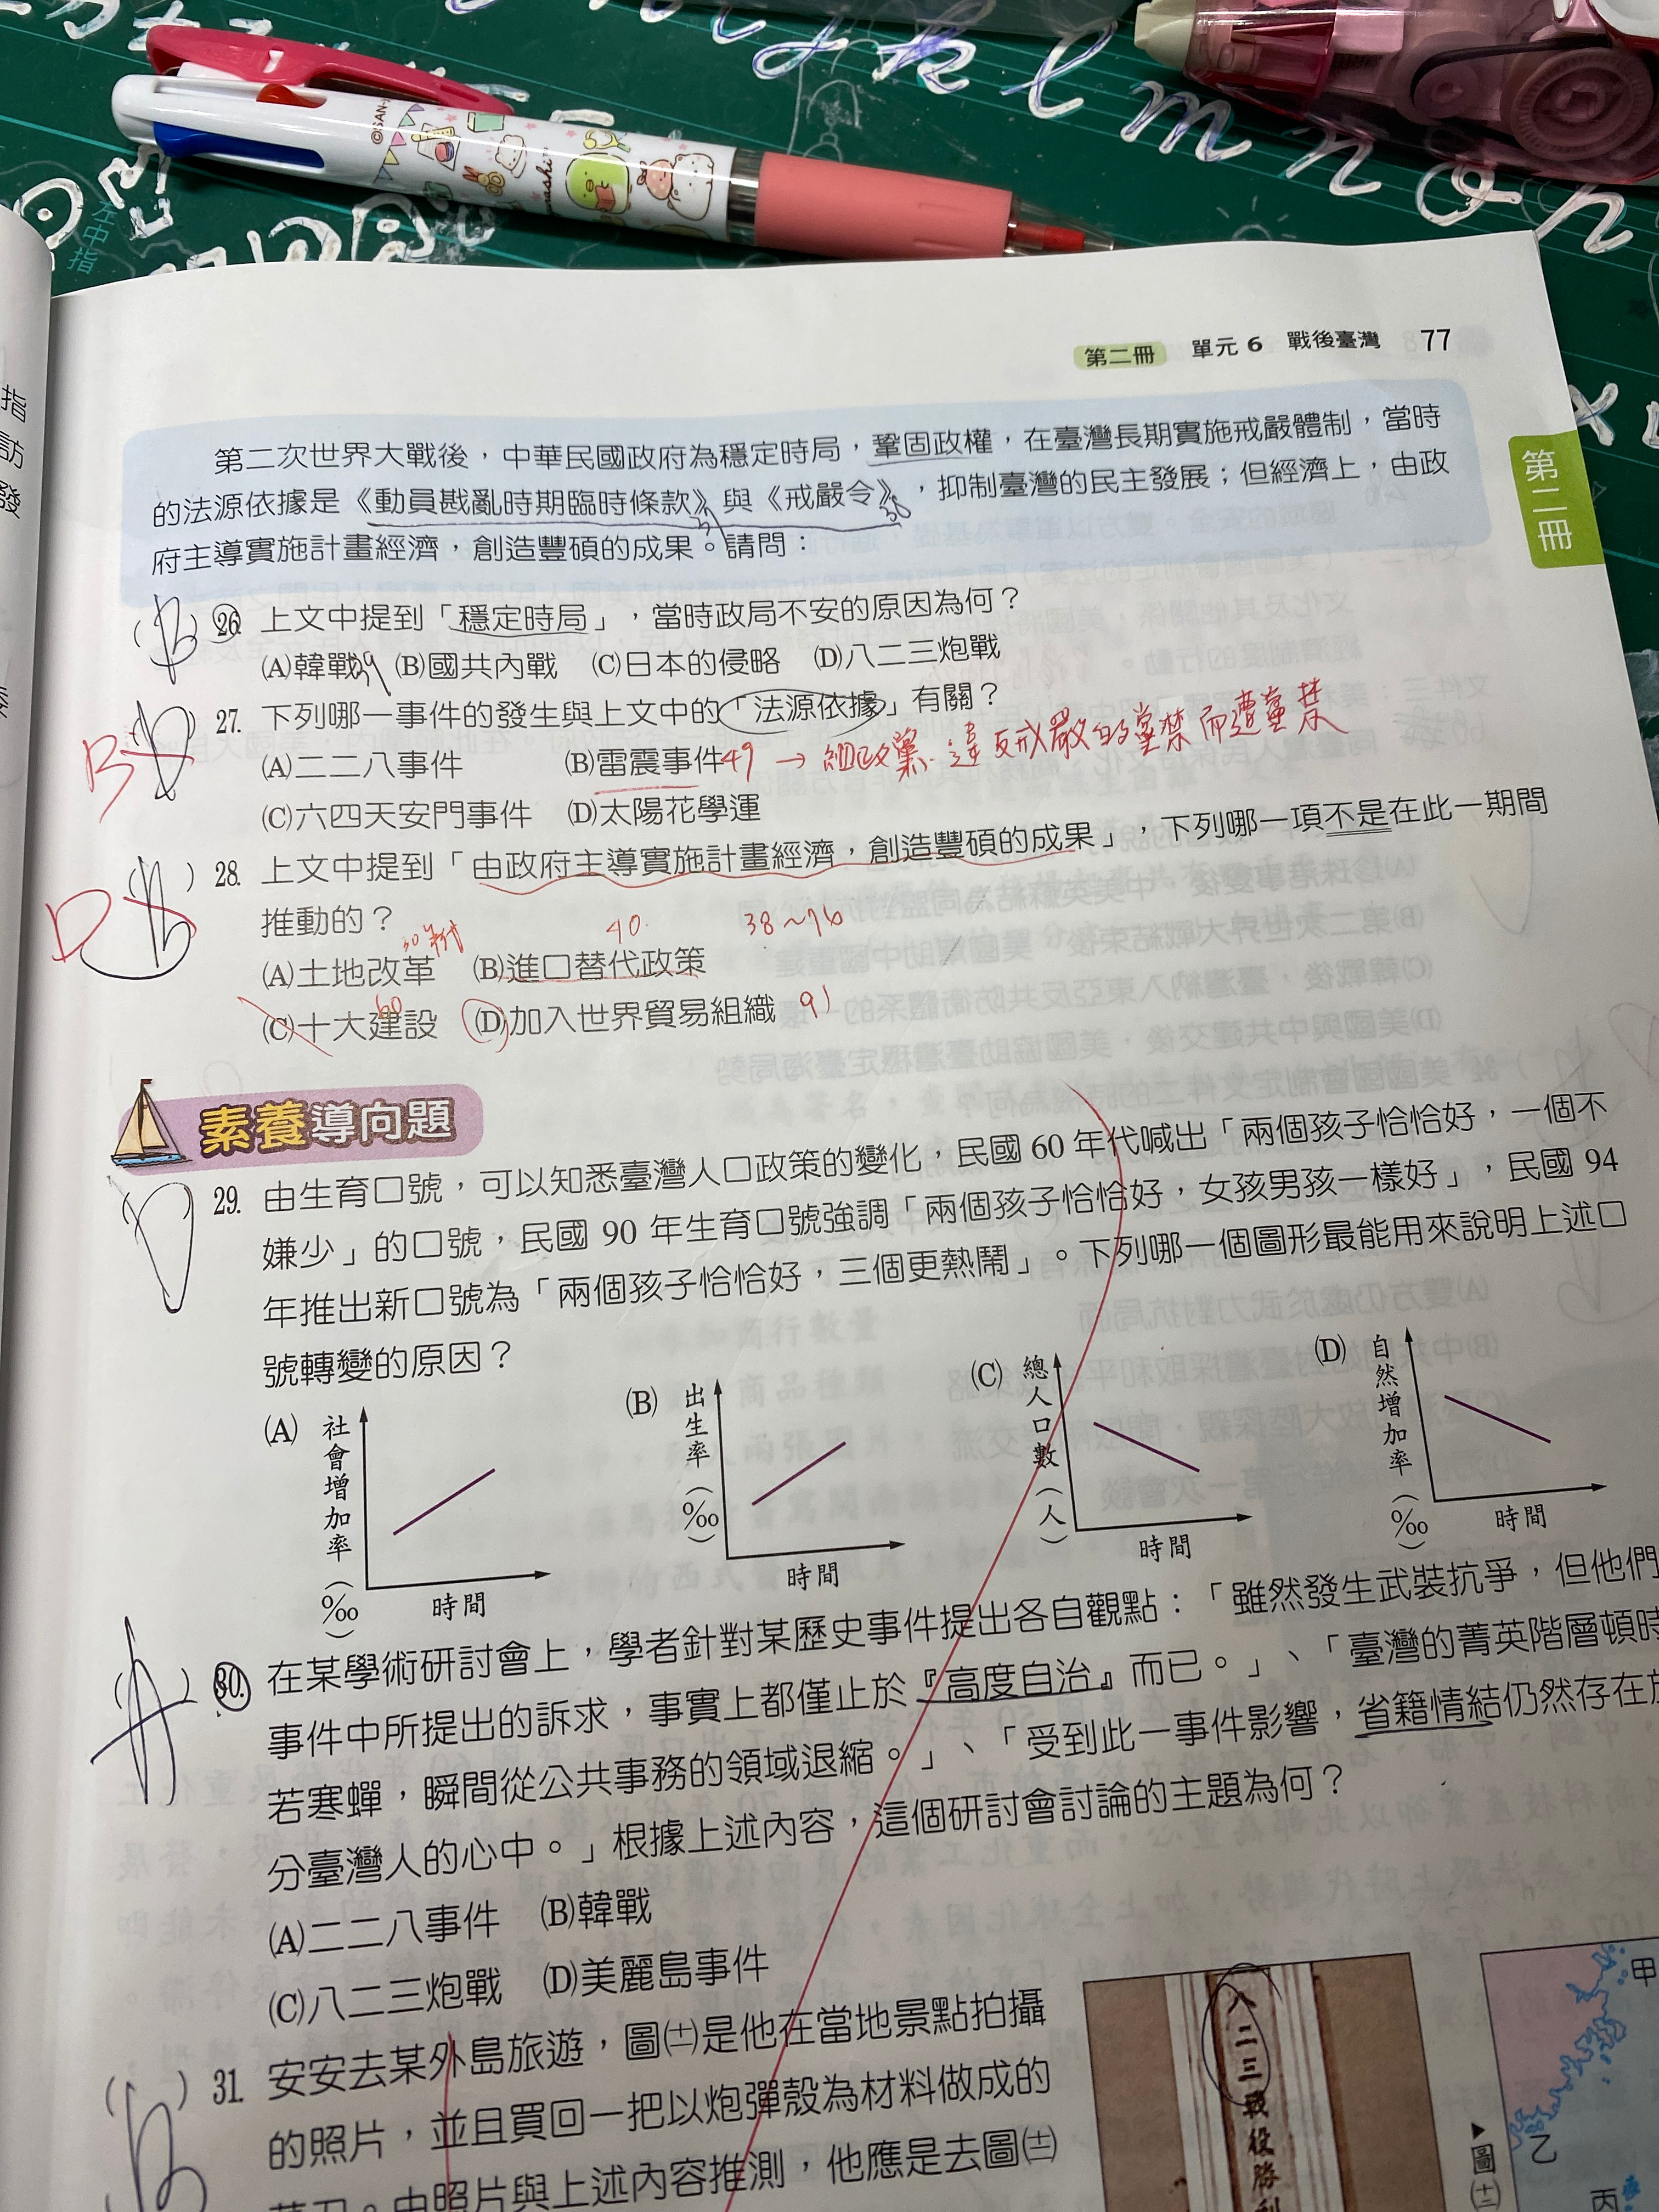 左中指
指
訪
發
第二冊 單元 6 戰後臺灣 77
第二冊
第二次世界大戰後，中華民國政府為穩定時局，鞏固政權，在臺灣長期實施戒嚴體制，當時
的法源依據是《動員戡亂時期臨時條款》與《戒嚴令》，抑制臺灣的民主發展；但經濟上，由政
府主導實施計畫經濟，創造豐碩的成果。請問：
(B) 26. 上文中提到「穩定時局」，當時政局不安的原因為何？
(A)韓戰39 (B)國共內戰 (C)日本的侵略 (D)八二三炮戰
B (D) 27. 下列哪一事件的發生與上文中的「法源依據」有關？
(A)二二八事件 (B)雷震事件49 → 組政黨．違反戒嚴的黨禁而遭
(C)六四天安門事件 (D)太陽花學運
D (B) 28. 上文中提到「由政府主導實施計畫經濟，創造豐碩的成果」，下列哪一項不是在此一期間
推動的？ 38~76
30年代 40
(A)土地改革 (B)進口替代政策
(C)十大建設 60 (D)加入世界貿易組織 91
素養導向題
(D) 29. 由生育口號，可以知悉臺灣人口政策的變化，民國 60 年代喊出「兩個孩子恰恰好，一個不
嫌少」的口號，民國 90 年生育口號強調「兩個孩子恰恰好，女孩男孩一樣好」，民國 94
年推出新口號為「兩個孩子恰恰好，三個更熱鬧」。下列哪一個圖形最能用來說明上述口
號轉變的原因？
(A) 社會增加率（‰） 時間
(B) 出生率（‰） 時間
(C) 總人口數（人） 時間
(D) 自然增加率（‰） 時間
(A) 30. 在某學術研討會上，學者針對某歷史事件提出各自觀點：「雖然發生武裝抗爭，但他們
事件中所提出的訴求，事實上都僅止於『高度自治』而已。」、「臺灣的菁英階層頓時
若寒蟬，瞬間從公共事務的領域退縮。」、「受到此一事件影響，省籍情結仍然存在於
分臺灣人的心中。」根據上述內容，這個研討會討論的主題為何？
(A)二二八事件 (B)韓戰
(C)八二三炮戰 (D)美麗島事件
(B) 31. 安安去某外島旅遊，圖(十一)是他在當地景點拍攝
的照片，並且買回一把以炮彈殼為材料做成的
菜刀。由照片與上述內容推測，他應是去圖(十二)
八二三戰役勝利
甲
乙
丙
▶圖(十二)